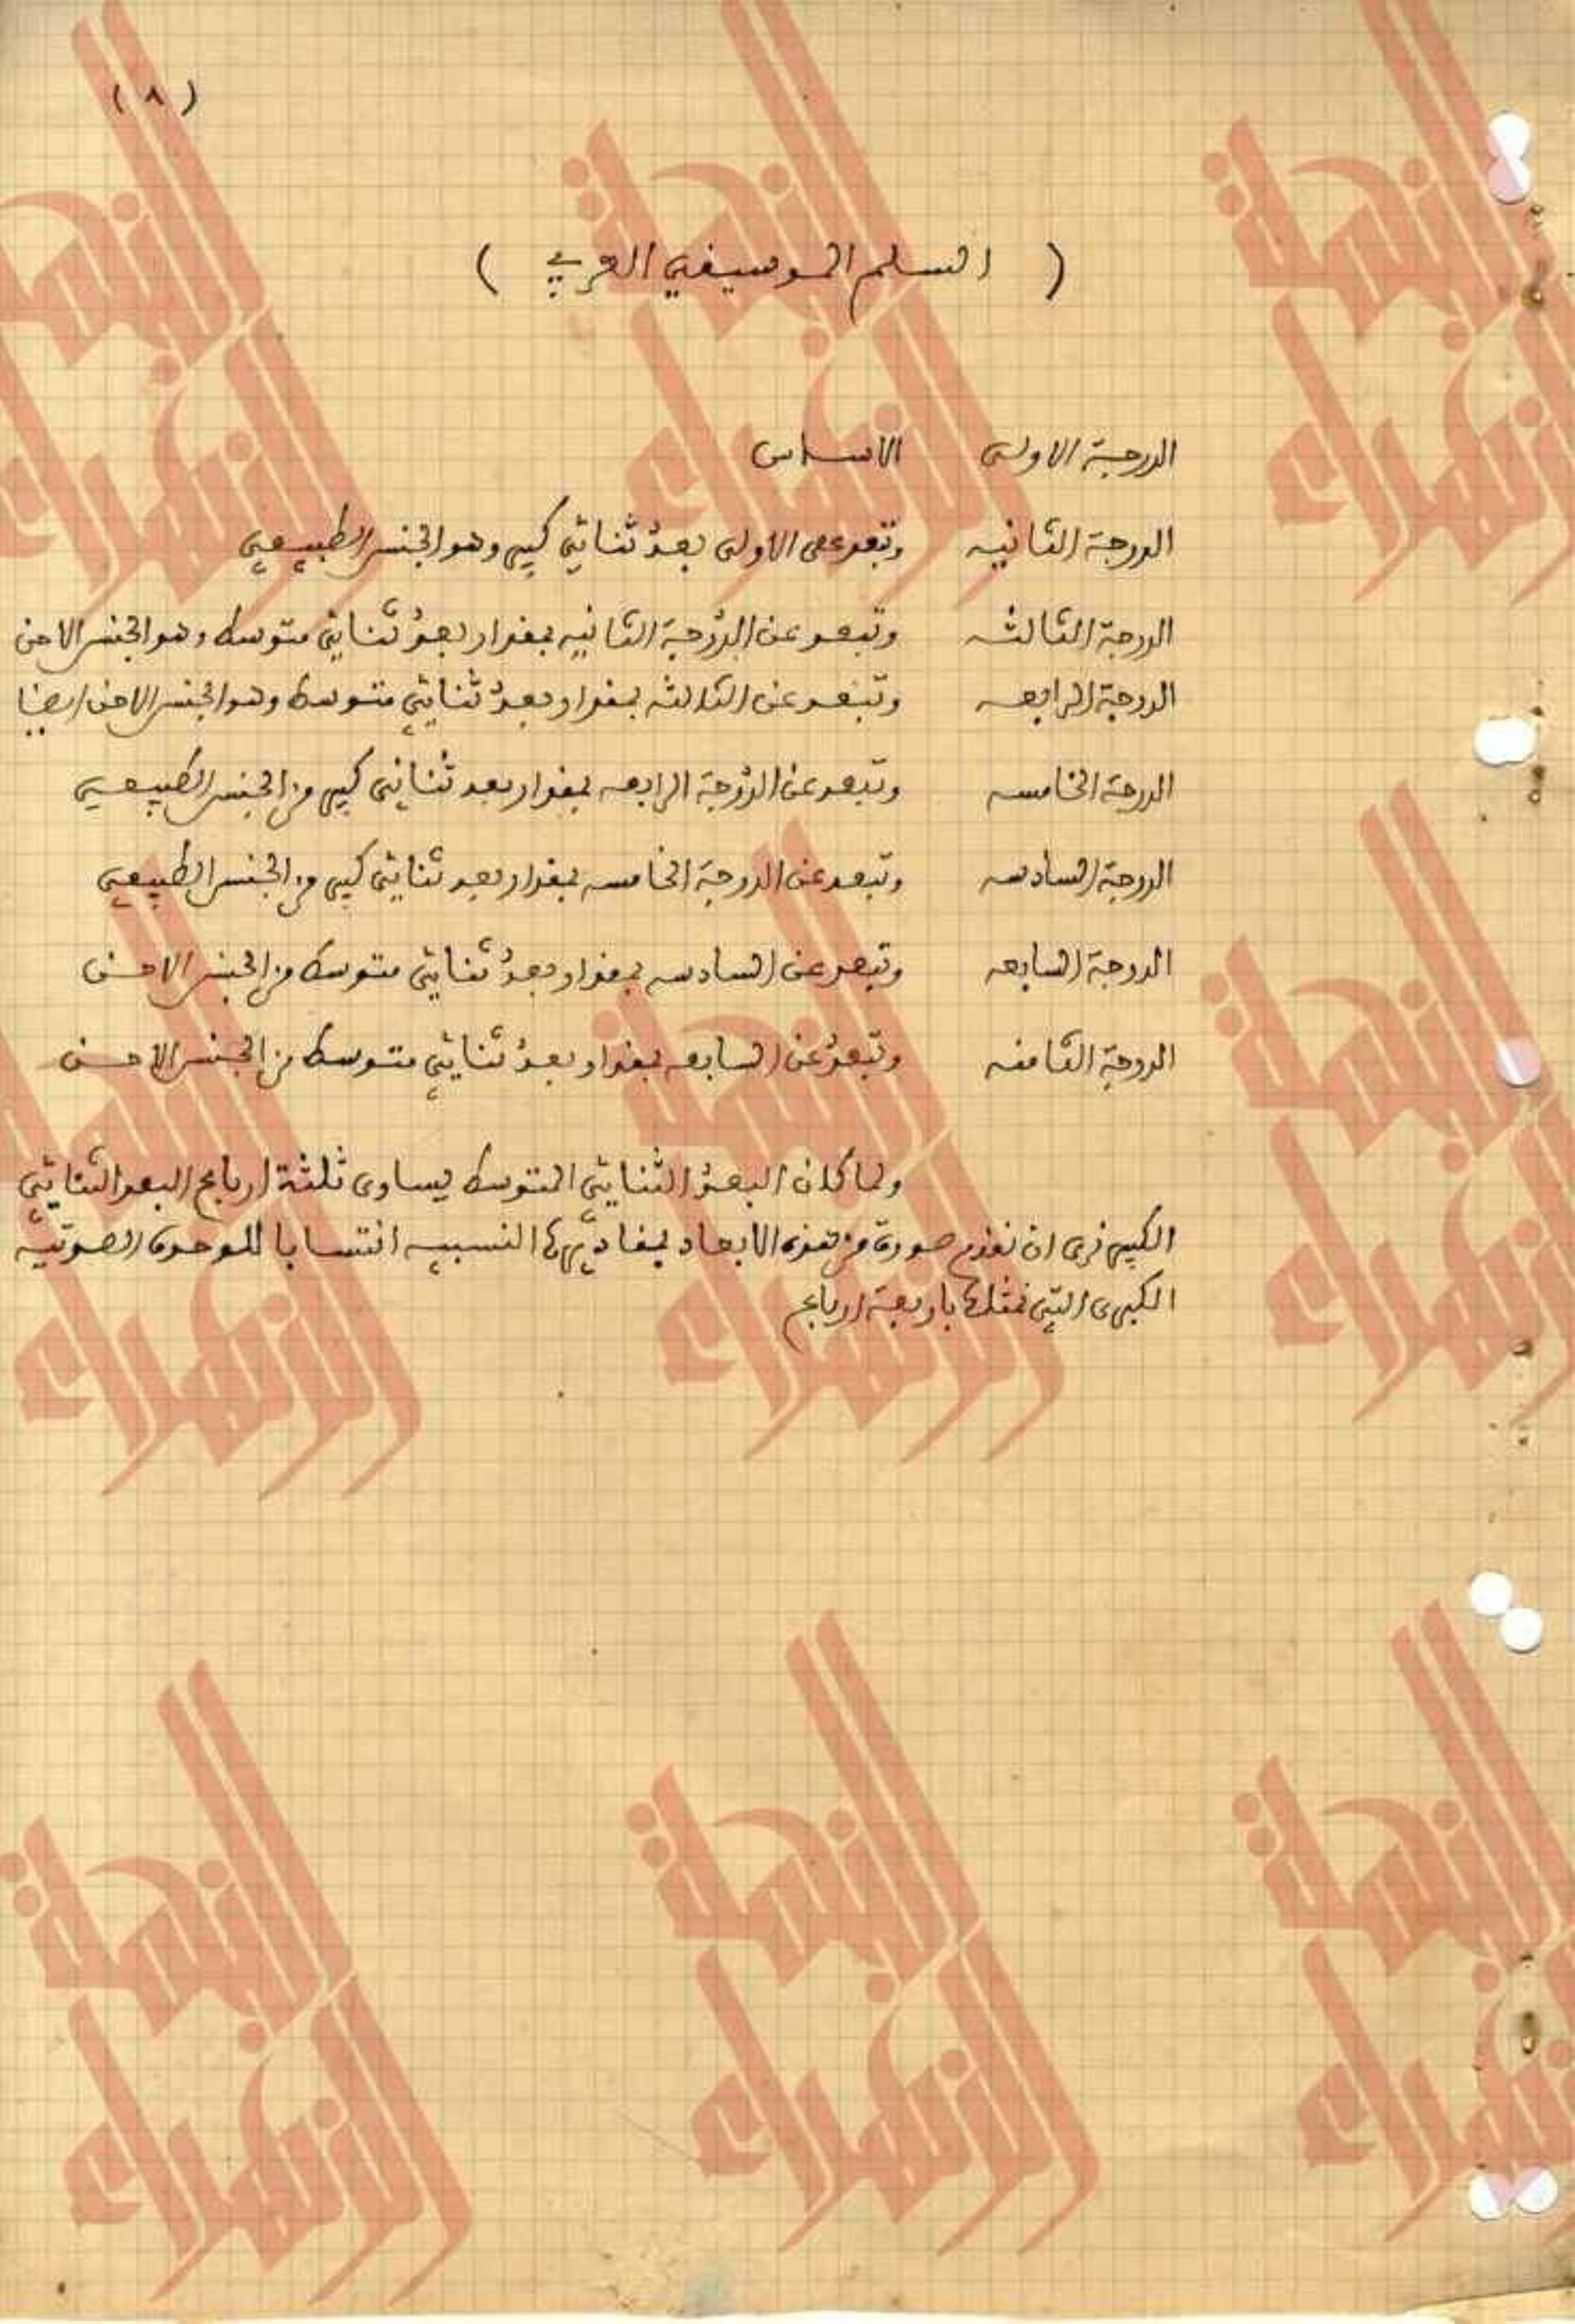 ( ٨ )
( السلم الموسيقي العربي )
الدرجة الاولى الاساس
الدرجة الثانيه وتبعد عن الاولى بعدُ ثنائي كبير وهو الجنس الطبيعي
الدرجة الثالثه وتبعد عن الدرجة الثانيه بمقدار بعدُ ثنائي متوسط وهو الجنس الاحن
الدرجة الرابعه وتبعد عن الثالثه بمقدار بعدُ ثنائي متوسط وهو الجنس الاحن ايضا
الدرجة الخامسه وتبعد عن الدرجة الرابعه بمقدار بعد ثنائي كبير من الجنس الطبيعي
الدرجة السادسه وتبعد عن الدرجة الخامسه بمقدار بعد ثنائي كبير من الجنس الطبيعي
الدرجة السابعه وتبعد عن السادسه بمقدار بعدُ ثنائي متوسط من الجنس الاحن
الدرجة الثامنه وتبعدُ عن السابعه بمقدار بعدُ ثنائي متوسط من الجنس الاحن
ولما كان البعدُ الثنائي المتوسط يساوى ثلثة ارباع البعد الثنائي
الكبير نرى ان نقدم صورة من هذه الابعاد بمقاديرها النسبيه انتسابا للوحدة الصوتيه
الكبرى التي نمثلها باربعة ارباع
النهضة
الزهراء